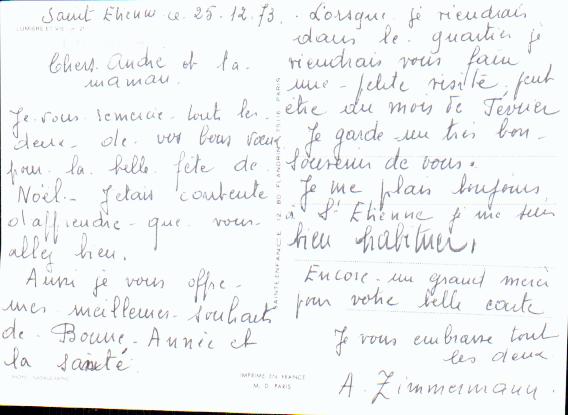 Saint Etienne ce 25.12.73.
LUMIERE ET VIE
Chers André et la
maman.
Je vous remercie tout les
deux de vos bons vœux
pour la belle fête de
Noël - J'etais contente
d'apprendre que vous
allez bien.
Aussi je vous offre
mes meilleures souhaits
de Bonne Année et
la santé.
SAINTE ENFANCE 12, BD FLANDRIN 75116 PARIS
IMPRIMÉ EN FRANCE
M. D. PARIS
Lorsque je viendrais
dans le quartier je
viendrais vous faire
une petite visite, peut
être au mois de Février
Je garde un très bon
souvenir de vous.
Je me plais toujours
à St Etienne je me suis
bien habituer,
Encore un grand merci
pour votre belle carte
Je vous embrasse tout
les deux
A. Zimmermann.